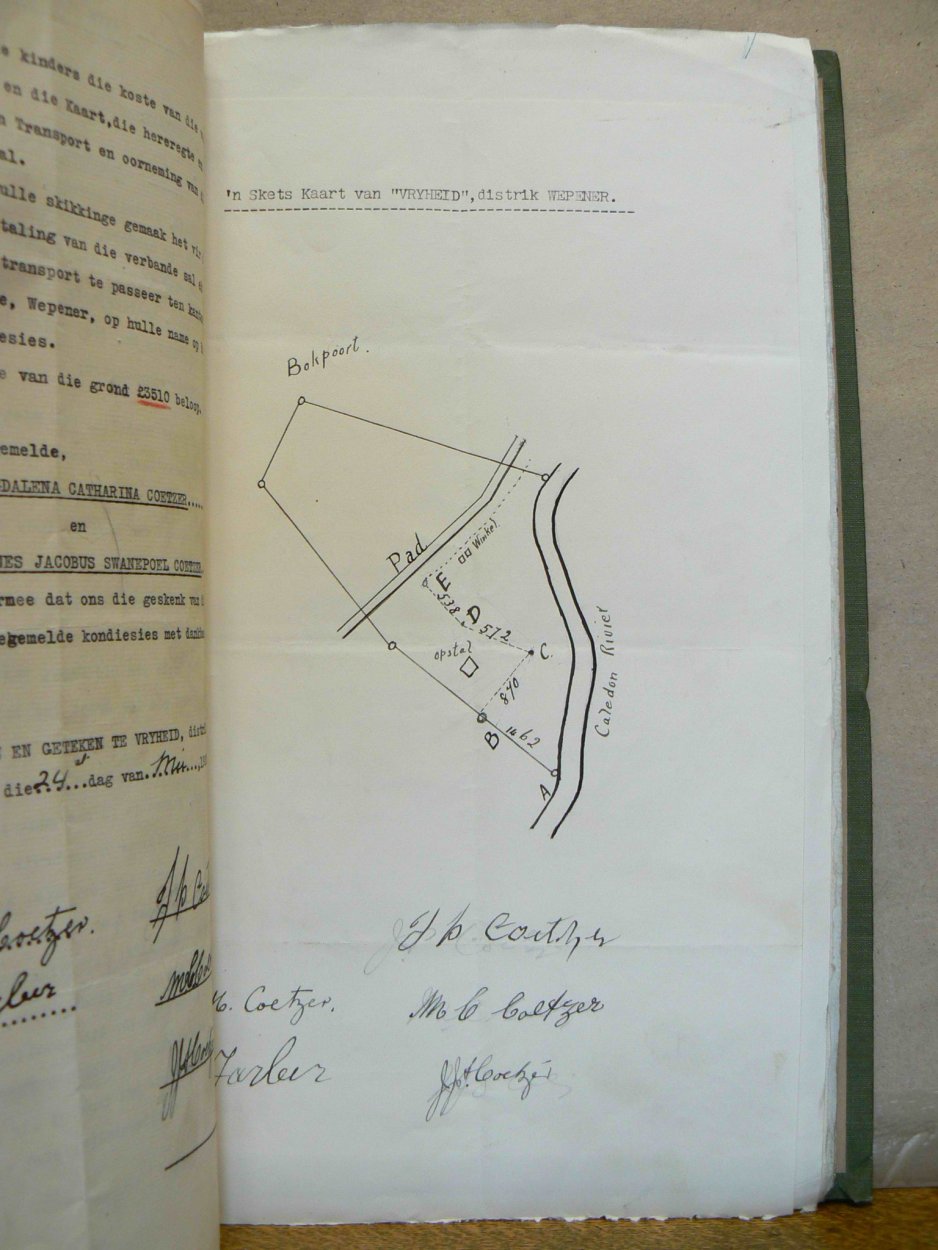 e kinders die koste van die
en die Kaart,die hereregte
Transport en oorneming van
al.
ulle skikkinge gemaak het vir
taling van die verbande sal
transport te passeer ten
e, Wepener, op hulle name op
esies.
e van die grond £3510 beloop,
emelde,
DALENA CATHARINA COETZER.....
en
NES JACOBUS SWANEPOEL COETZER
rmee dat ons die geskenk van
egemelde kondiesies met
EN GETEKEN TE VRYHEID,
die..24...dag van.
Coetzer.
'n Skets Kaart van "VRYHEID",distrik WEPENER.
Bokpoort.
Pad
Winkel
E
538
D
572
opstal
C.
870
B
1462
A
Caledon Rivier
J P Coetzer
C. Coetzer.
M C Coetzer
J J S Coetzer